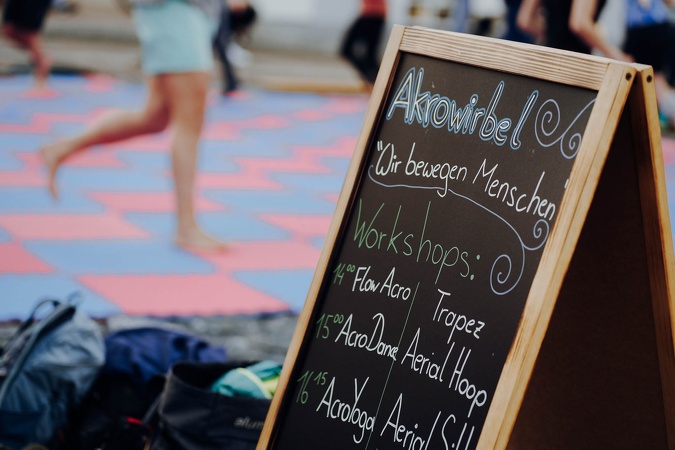 Akrowirbel
"Wir bewegen Menschen"
Workshops:
14⁰⁰ Flow Acro
Trapez
15⁰⁰ AcroDance
Aerial Hoop
16¹⁵ AcroYoga
Aerial